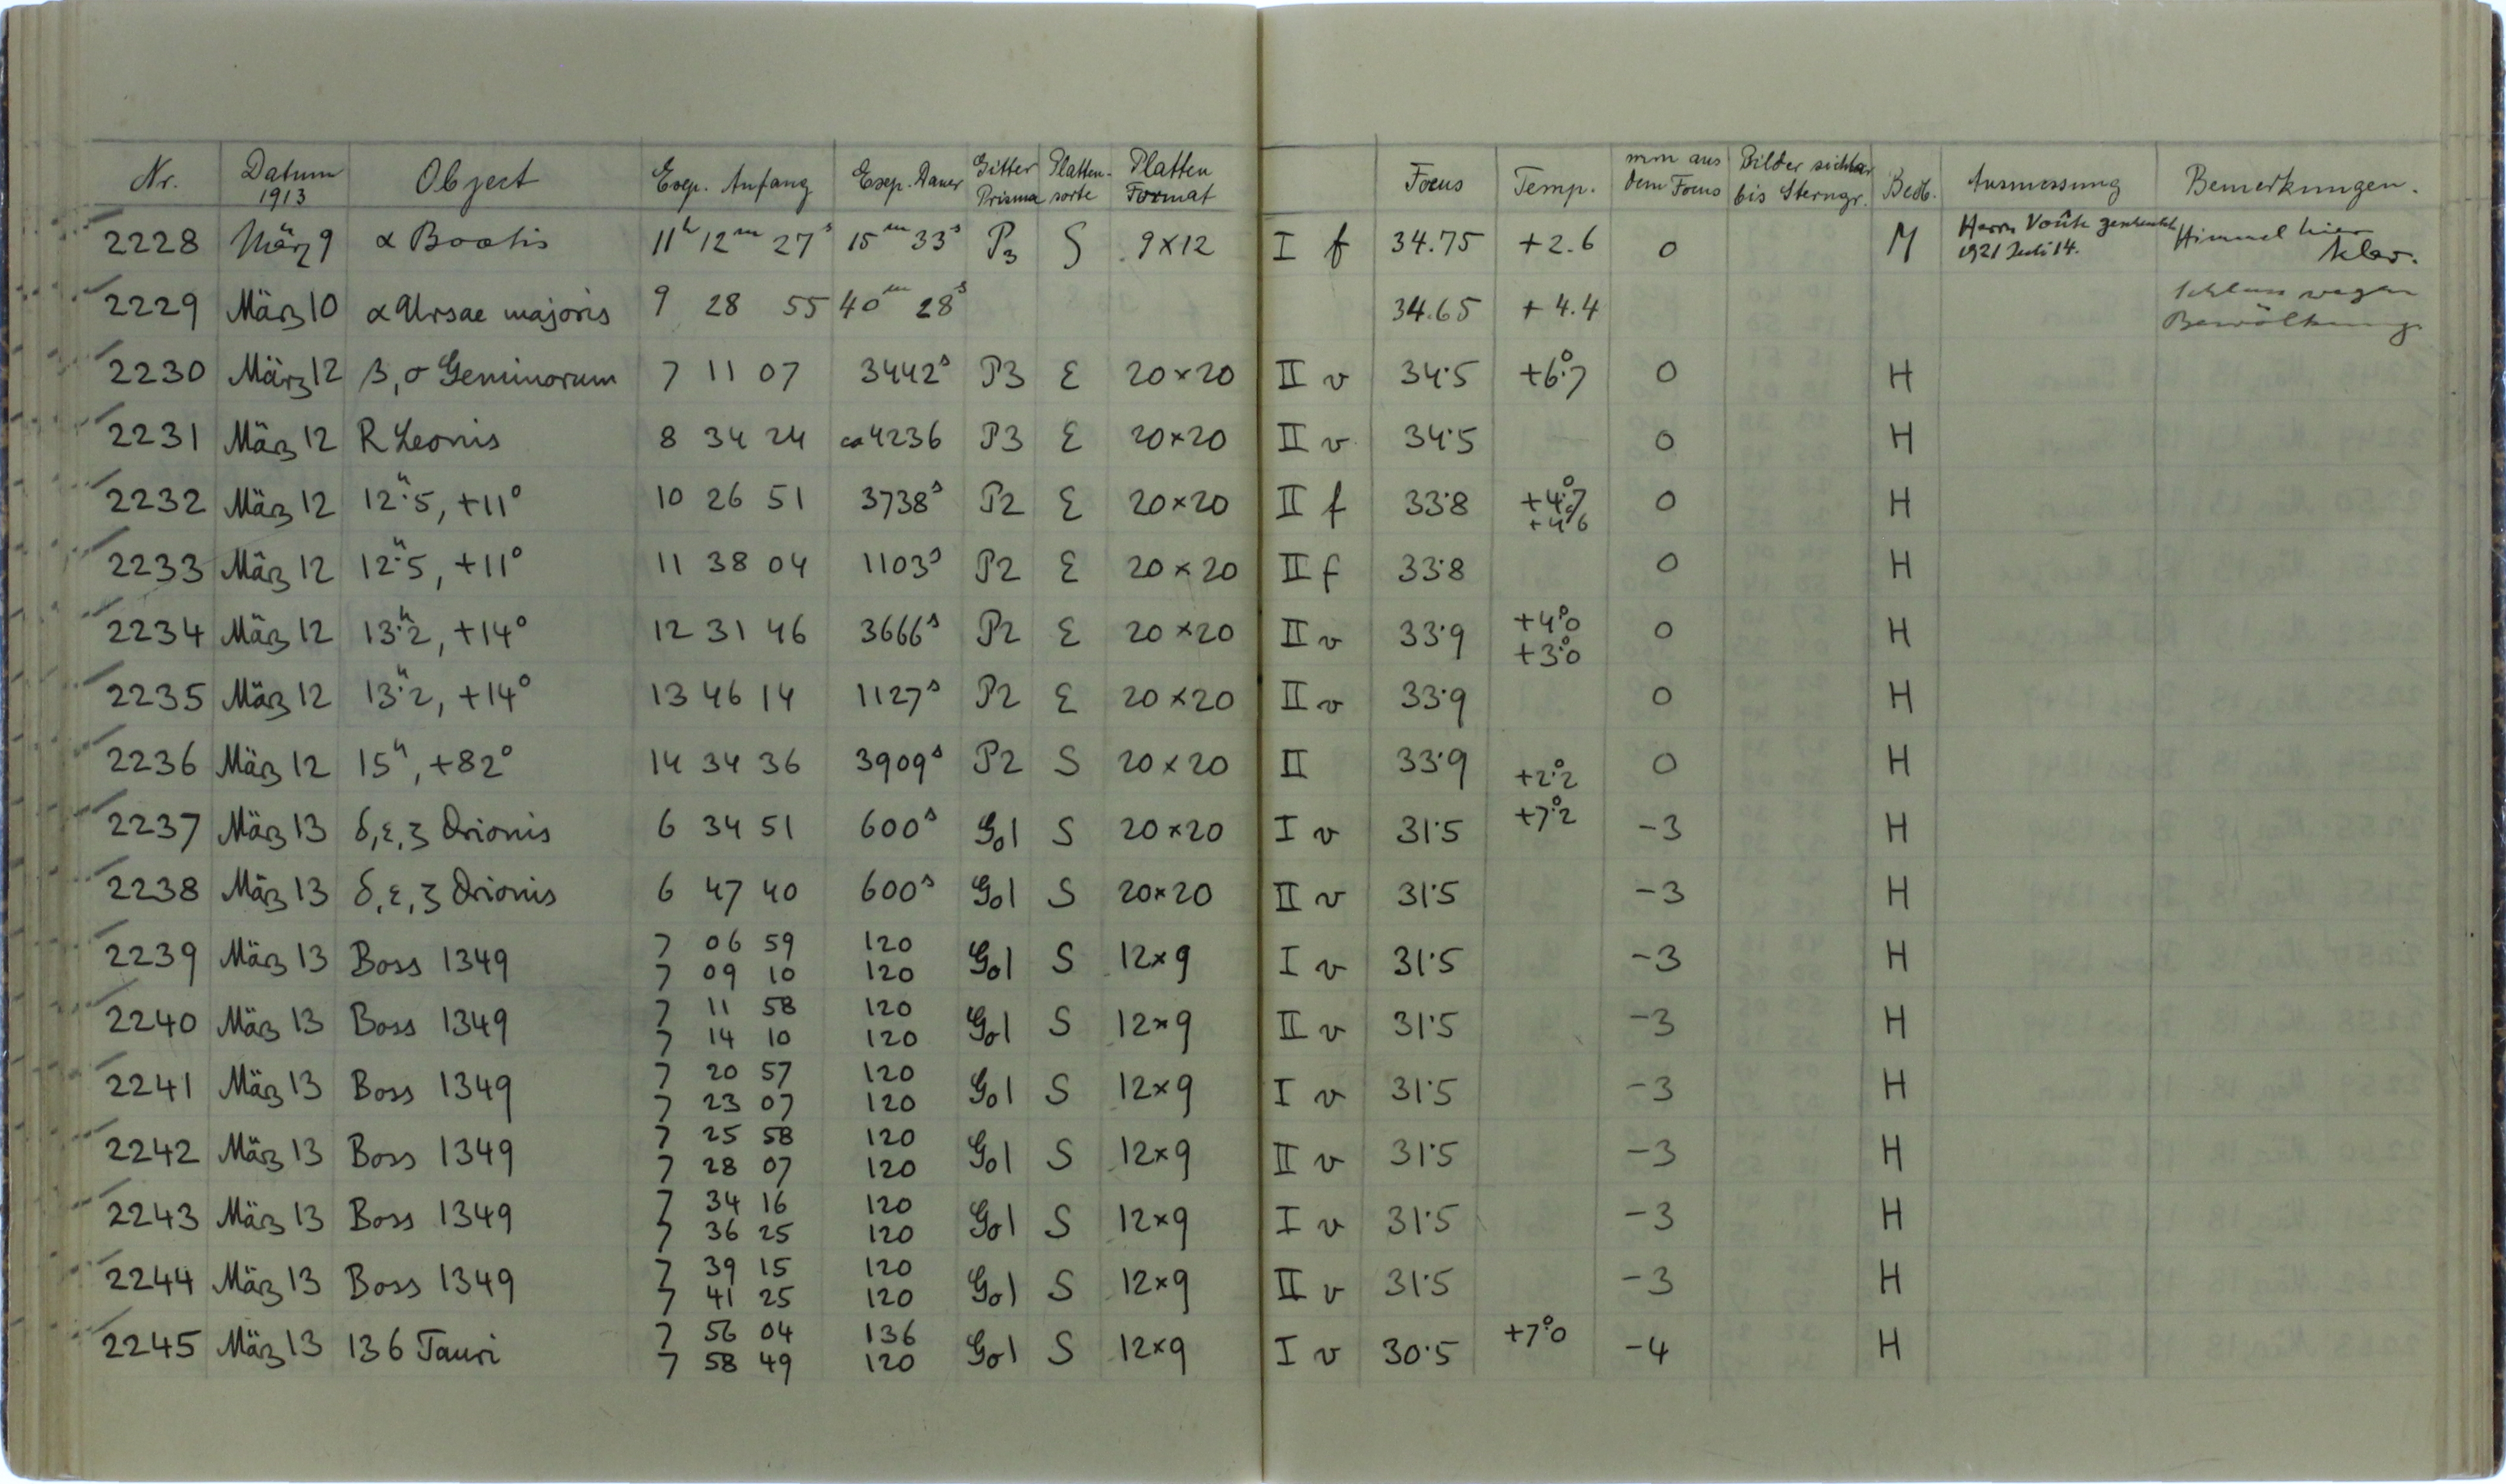 Nr. Datum 1913 Object Exp. Anfang Exp. Dauer Gitter Prisma Platten-sorte Platten Format Focus Temp. mm aus dem Focus Bilder sichtbar bis Sterngr. Beob. Ausmessung Bemerkungen.
2228 März 9 α Bootis 11h 12m 27s 15m 33s P3 S 9×12 I f 34.75 +2.6 0 M Herrn Voûte 1921 Juli 14. Himmel hier klar.
2229 März 10 α Ursae majoris 9 28 55 40m 28s 34.65 +4.4 Schluss wegen Bewölkung
2230 März 12 β, σ Geminorum 7 11 07 3442s P3 E 20×20 II v 34.5 +6°.7 0 H
2231 März 12 R Leonis 8 34 24 ca 4236 P3 E 20×20 II v 34.5 0 H
2232 März 12 12h.5, +11° 10 26 51 3738s P2 E 20×20 II f 33.8 +4°.7 +4°.6 0 H
2233 März 12 12h.5, +11° 11 38 04 1103s P2 E 20×20 II f 33.8 0 H
2234 März 12 13h.2, +14° 12 31 46 3666s P2 E 20×20 II v 33.9 +4°.0 +3°.0 0 H
2235 März 12 13h.2, +14° 13 46 14 1127s P2 E 20×20 II v 33.9 0 H
2236 März 12 15h, +82° 14 34 36 3909s P2 S 20×20 II 33.9 +2°.2 0 H
2237 März 13 δ, ε, ζ Orionis 6 34 51 600s Go1 S 20×20 I v 31.5 +7°.2 -3 H
2238 März 13 δ, ε, ζ Orionis 6 47 40 600s Go1 S 20×20 II v 31.5 -3 H
7 06 59 120
2239 März 13 Boss 1349 Go1 S 12×9 I v 31.5 -3 H
7 09 10 120
7 11 58 120
2240 März 13 Boss 1349 Go1 S 12×9 II v 31.5 -3 H
7 14 10 120
7 20 57 120
2241 März 13 Boss 1349 Go1 S 12×9 I v 31.5 -3 H
7 23 07 120
7 25 58 120
2242 März 13 Boss 1349 Go1 S 12×9 II v 31.5 -3 H
7 28 07 120
7 34 16 120
2243 März 13 Boss 1349 Go1 S 12×9 I v 31.5 -3 H
7 36 25 120
7 39 15 120
2244 März 13 Boss 1349 Go1 S 12×9 II v 31.5 -3 H
7 41 25 120
7 56 04 136
2245 März 13 136 Tauri Go1 S 12×9 I v 30.5 +7°.0 -4 H
7 58 49 120